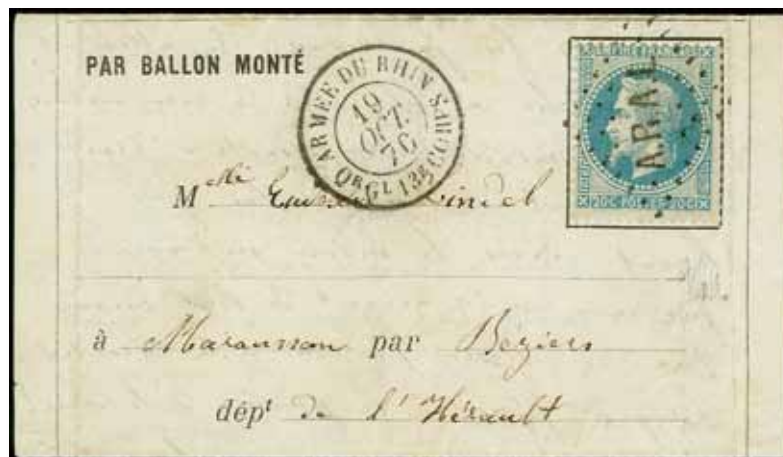 PAR BALLON MONTÉ
ARMÉE DU RHIN
19
OCT.
70
QR GL 13E CORPS
A.R.A.L
20C POSTES 20C
Mlle
à Maraussan par Béziers
dépt de l'Hérault